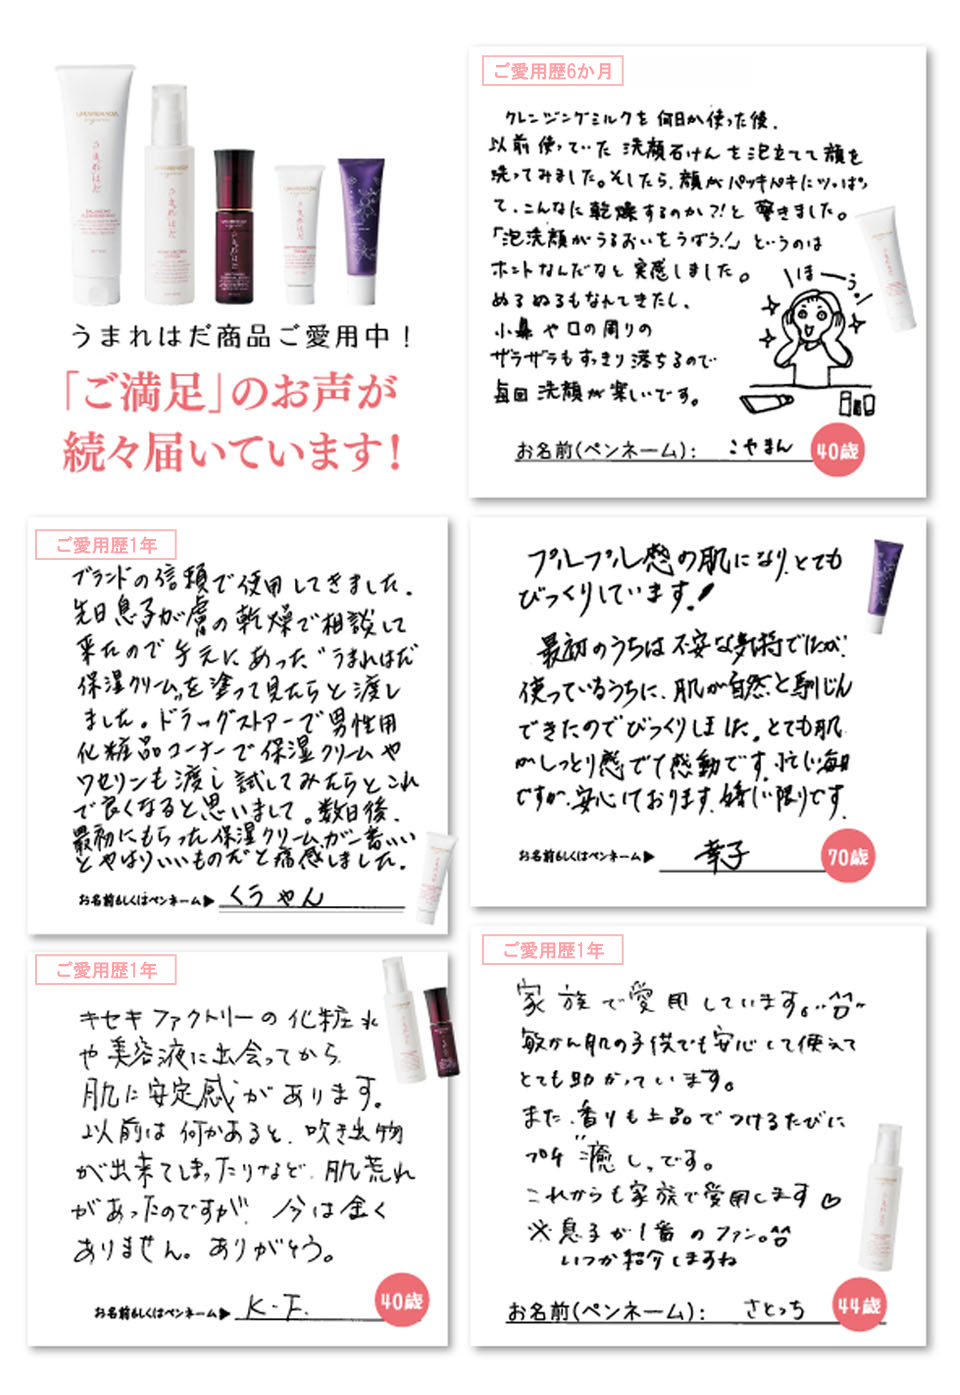 うまれはだ
うまれはだ
うまれはだ
うまれはだ
うまれはだ商品ご愛用中！
「ご満足」のお声が
続々届いています！
ご愛用歴6か月
クレンジングミルクを何日か使った後、
以前使っていた洗顔石けんを泡立てて顔を
洗ってみました。そしたら、顔がパッキパキにツッぱっ
て、こんなに乾燥するのか?!と驚きました。
「泡洗顔がうるおいをうばう!」というのは
ホントなんだなと実感しました。
ぬるぬるもなんてきたし、
小鼻や口の周りの
ザラザラもすっきり落ちるので
毎回洗顔が楽しいです。
ほーっ。
お名前(ペンネーム)： こやまん
40歳
ご愛用歴1年
ブランドの信頼で使用してきました。
先日息子が膚の乾燥で相談して
来たので手元にあった"うまれはだ
保湿クリーム"を塗って見たらと渡し
ました。ドラッグストアーで男性用
化粧品コーナーで保湿クリームや
ワセリンも渡し試してみたらとこれ
で良くなると思いまして。数日後、
最初にもらった保湿クリームが一番いい
とやはりいいものだと痛感しました。
お名前もしくはペンネーム▶ くうやん
プルプル感の肌になり、とても
びっくりしています！
最初のうちは不安な気持でしたが、
使っているうちに、肌が自然と馴じん
できたのでびっくりしました。とても肌
がしっとり感でて感動です。忙しい毎日
ですが、安心しております。嬉しい限りです。
お名前もしくはペンネーム▶ 幸子
70歳
ご愛用歴1年
キセキファクトリーの化粧水
や美容液に出会ってから
肌に安定感があります。
以前は何かあると、吹き出物
が出来てしまったりなど、肌荒れ
があったのですが、今は全く
ありません。ありがとう。
お名前もしくはペンネーム▶ K.F.
40歳
ご愛用歴1年
家族で愛用しています。
敏かん肌の子供でも安心して使えて
とても助かっています。
また、香りも上品でつけるたびに
プチ"癒し"です。
これからも家族で愛用します♡
※息子が1番のファン。
いつか紹介しますね
お名前(ペンネーム)： さとっち
44歳